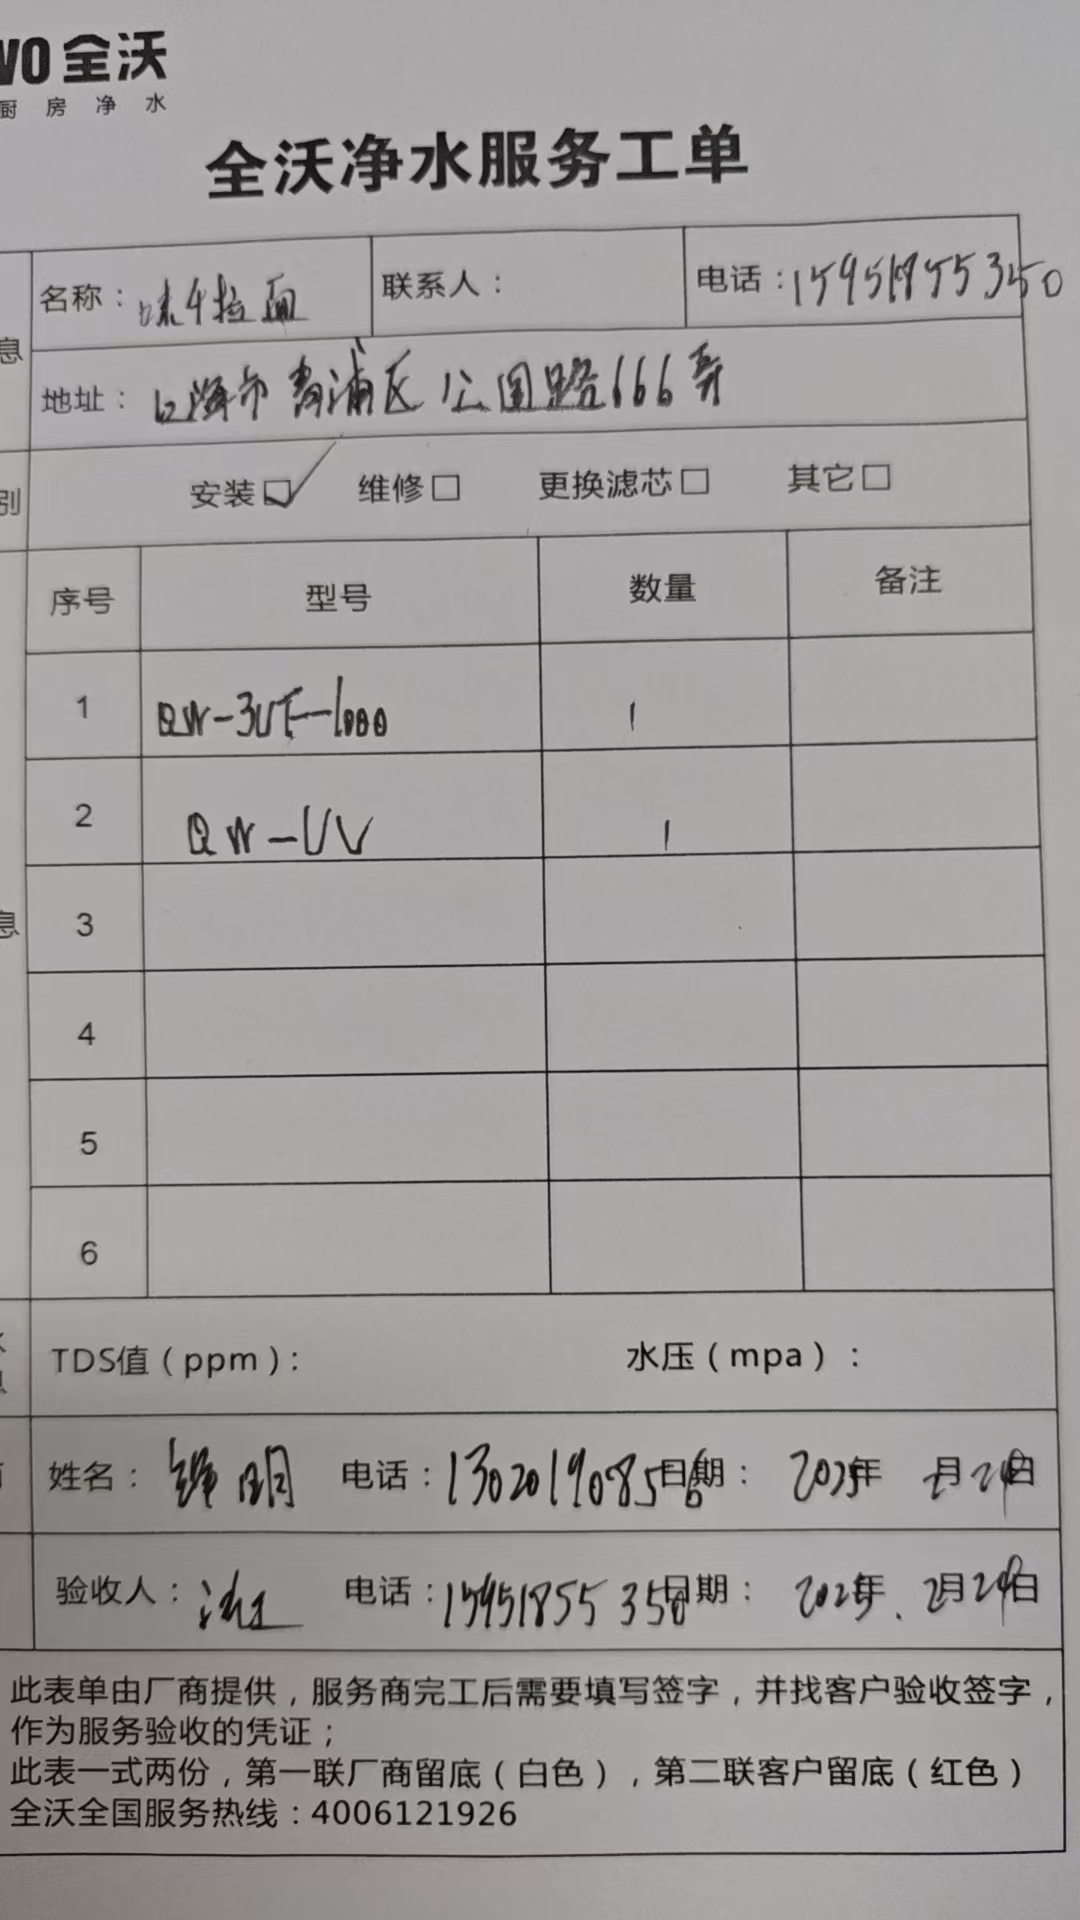 WO 全沃
厨房净水
全沃净水服务工单
息
名称：味千拉面 联系人： 电话：15951855350
地址：上海市青浦区公园路666弄
别
安装☑ 维修□ 更换滤芯□ 其它□
序号 型号 数量 备注
1 QW-3UF-1000 1
2 QW-UV 1
息
3
4
5
6
TDS值（ppm）： 水压（mpa）：
息
姓名： 明 电话：13020190856 日期：2025年2月24日
验收人： 电话：15951855350 日期：2025年.2月24日
此表单由厂商提供，服务商完工后需要填写签字，并找客户验收签字，
作为服务验收的凭证；
此表一式两份，第一联厂商留底（白色），第二联客户留底（红色）
全沃全国服务热线：4006121926